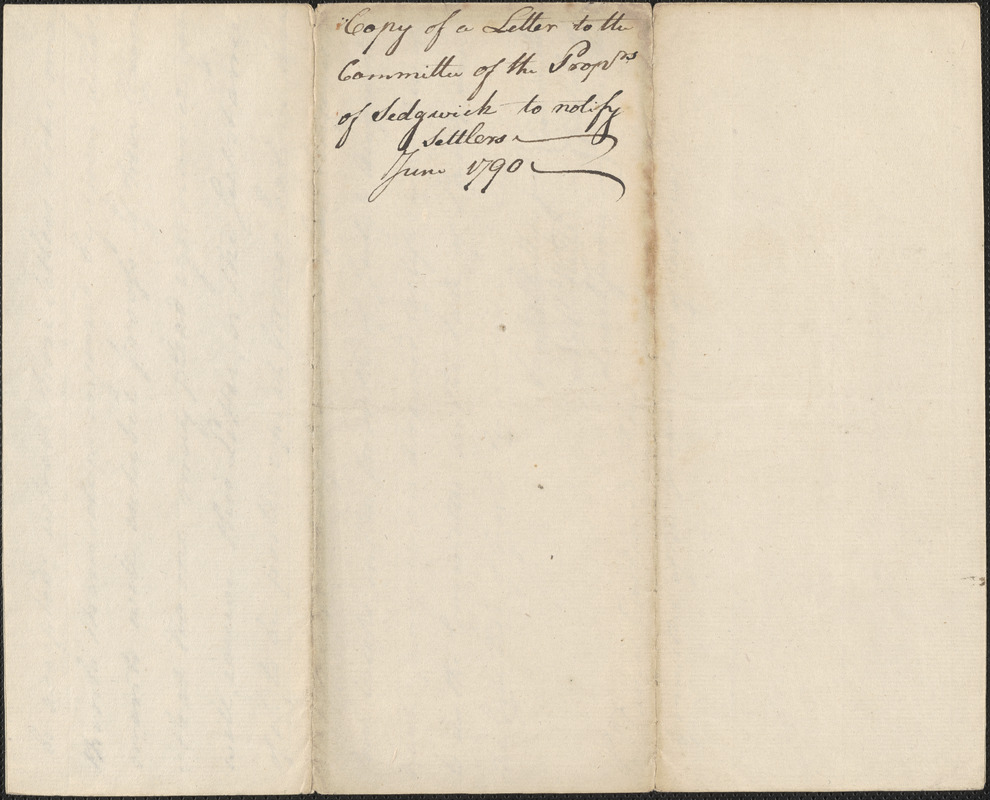 Copy of a Letter to the
Committee of the Prop.rs
of Sedgwick to notify
Settlers
June 1790